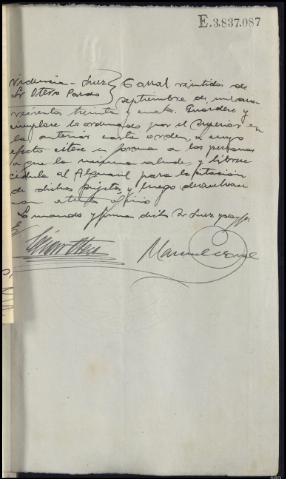 E.3.837.087
Providencia - Juez } Carral veintidos de
Sr Otero Pardo } septiembre de mil nove
cientos treinta y cuatro. Guardese y
cumplase lo ordenado por el Superior en
la anterior carta orden, a cuyo
efecto citese en forma a las personas
que la misma alude, y librese
cedula al Alguacil para la citacion
de dichos sujetos, y luego devuelvase
Lo mando y firma dicho Sr Juez y doy fe
Manuel